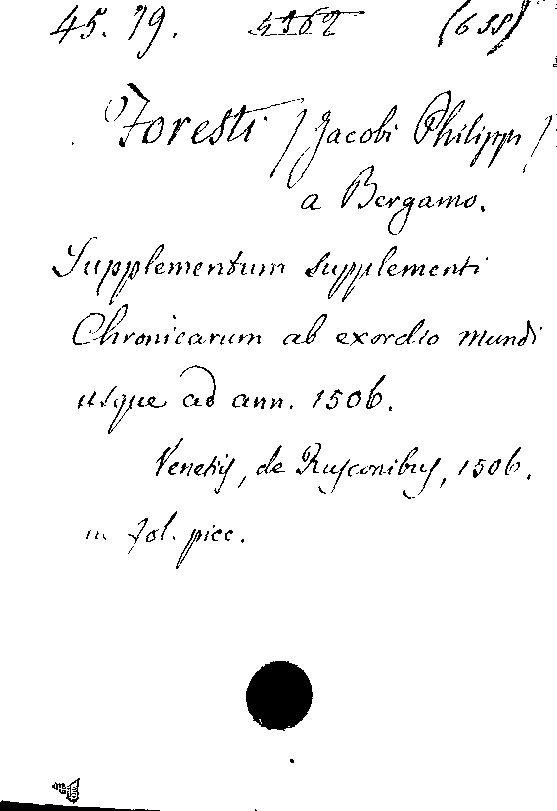 45. 79. (658)
Foresti / Jacobi Philippi /
a Bergamo.
Supplementum supplementi
Chronicarum ab exordio mundi
usque ad ann. 1506.
Venetiis, de Rusconibus, 1506.
in fol. picc.